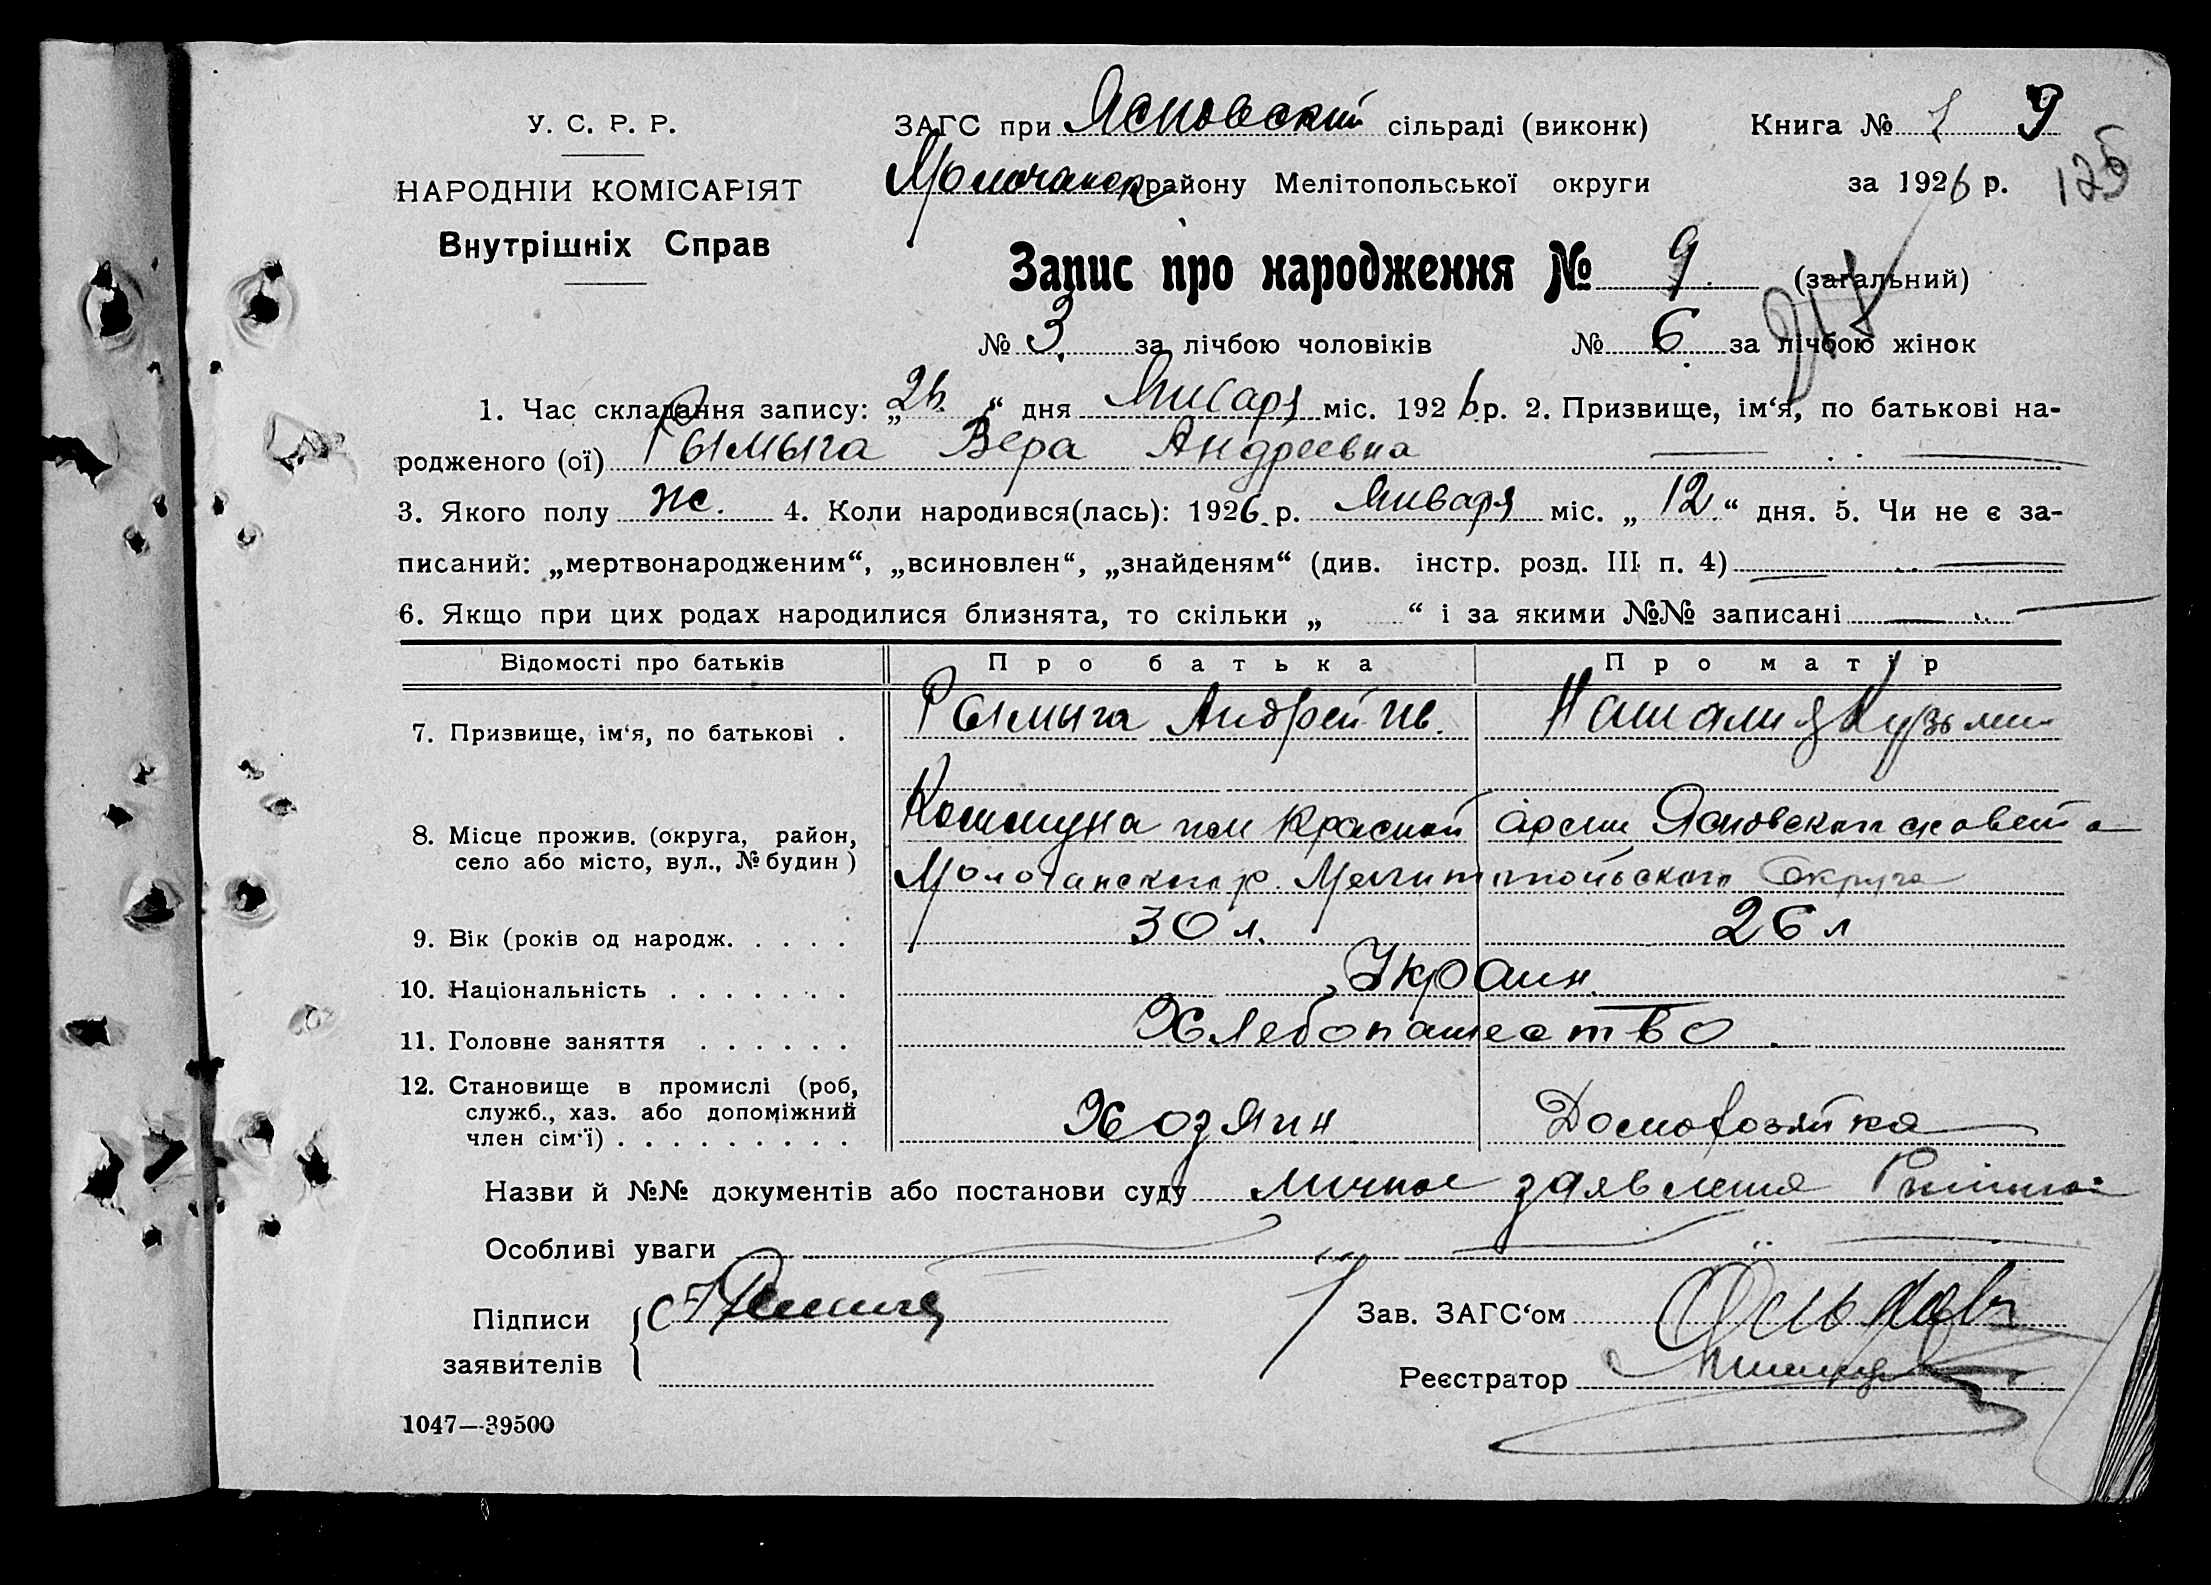 У. С. Р. Р.
НАРОДНІЙ КОМІСАРІЯТ
Внутрішніх Справ
ЗАГС при Ясновский сільраді (виконк) Книга № 1 9
Молочанск району Мелітопольської округи за 1926 р. 125
Запис про народження № 9 (загальний)
№ 3 за лічбою чоловіків № 6 за лічбою жінок
1. Час складання запису: „26“ дня Января міс. 1926 р. 2. Призвище, ім‘я, по батькові на-
родженого (ої) Рымыга Вера Андреевна
3. Якого полу ж. 4. Коли народився(лась): 1926 р. Января міс. „12“ дня. 5. Чи не є за-
писаний: „мертвонародженим“, „всиновлен“, „знайденям“ (див. інстр. розд. III п. 4)
6. Якщо при цих родах народилися близнята, то скільки „ “ і за якими №№ записані
Відомості про батьків Про батька Про матір
7. Призвище, ім‘я, по батькові . Рымыга Андрей Ив. Наталия Кузьмин
8. Місце прожив. (округа, район, Коммуна им Красной армии Ясновского сельсовета
село або місто, вул., № будин) Молочанского р. Мелитопольского Округа
9. Вік (років од народж. . . . . 30 л. 26 л
10. Національність . . . . . . . Украин.
11. Головне заняття . . . . . . Хлебопашество.
12. Становище в промислі (роб, 
служб., хаз. або допоміжний Хозяин Домохозяйка
член сім‘ї) . . . . . . . . .
Назви й №№ документів або постанови суду личное заявления Рымыга
Особливі уваги
Підписи Рымыга Зав. ЗАГС‘ом
заявителів Реєстратор
1047—39500